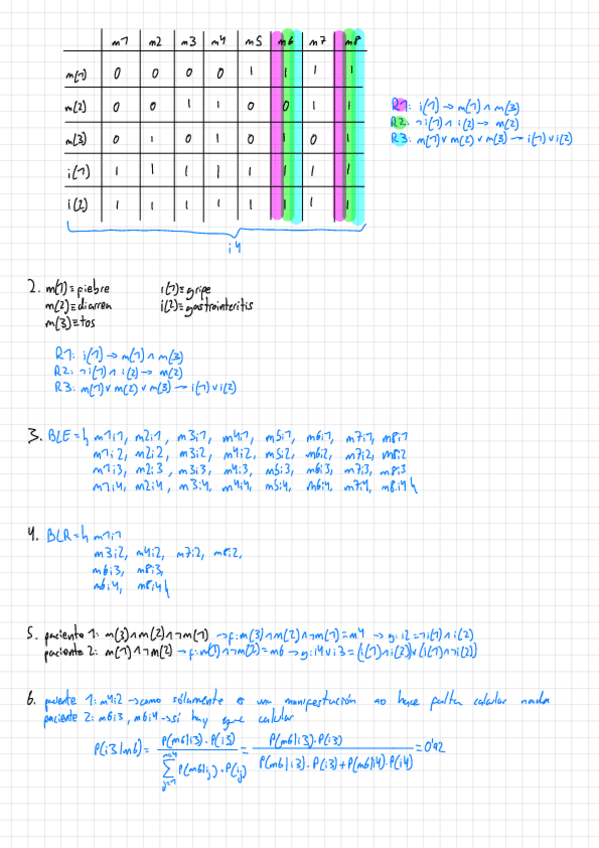 m1 m2 m3 m4 m5 m6 m7 m8
m(1) 0 0 0 0 1 1 1 1
m(2) 0 0 1 1 0 0 1 1
m(3) 0 1 0 1 0 1 0 1
i(1) 1 1 1 1 1 1 1 1
i(2) 1 1 1 1 1 1 1 1
i4
R1: i(1) → m(1) ∧ m(3)
R2: ¬i(1) ∧ i(2) → m(2)
R3: m(1) ∨ m(2) ∨ m(3) → i(1) ∨ i(2)
2. m(1) ≡ fiebre i(1) ≡ gripe
m(2) ≡ diarrea i(2) ≡ gastrointeritis
m(3) ≡ tos
R1: i(1) → m(1) ∧ m(3)
R2: ¬i(1) ∧ i(2) → m(2)
R3: m(1) ∨ m(2) ∨ m(3) → i(1) ∨ i(2)
3. BLE = { m1i1, m2i1, m3i1, m4i1, m5i1, m6i1, m7i1, m8i1
m1i2, m2i2, m3i2, m4i2, m5i2, m6i2, m7i2, m8i2
m1i3, m2i3, m3i3, m4i3, m5i3, m6i3, m7i3, m8i3
m1i4, m2i4, m3i4, m4i4, m5i4, m6i4, m7i4, m8i4 }
4. BLR = { m1i1
m3i2, m4i2, m7i2, m8i2,
m6i3, m8i3,
m6i4, m8i4 }
5. paciente 1: m(3)∧m(2)∧¬m(1) → f: m(3)∧m(2)∧¬m(1) = m4 → g: i2 = ¬i(1)∧i(2)
paciente 2: m(1)∧¬m(2) → f: m(1)∧¬m(2) = m6 → g: i4∨i3 = (i(1)∧i(2))∨(i(1)∧¬i(2))
6. paciente 1: m4i2 → como sólamente es una manifestación no hace falta calcular nada
paciente 2: m6i3, m6i4 → sí hay que calcular
P(i3|m6) = P(m6|i3)·P(i3) / ∑ j=1 m=4 P(m6|ij)·P(ij) = P(m6|i3)·P(i3) / P(m6|i3)·P(i3)+P(m6|i4)·P(i4) = 0'92